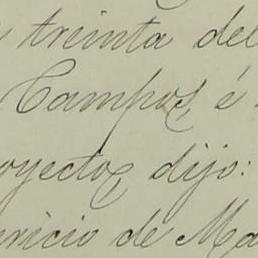 treinta del
Campos, é
oyectos dijo:
nicio de Ma